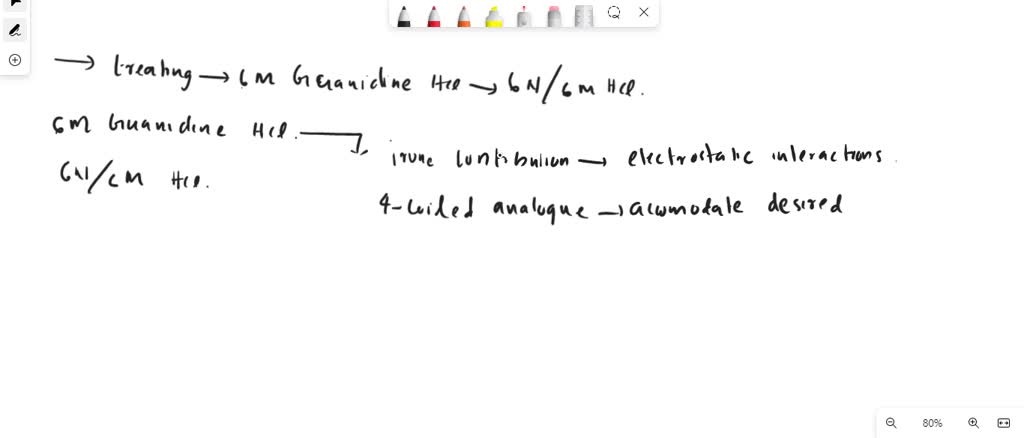 → treating → 6M Guanidine Hcl → 6N/6M Hcl.
6M Guanidine Hcl.
ionic contribution → electrostatic interactions.
6N/6M Hcl.
4-coiled analogue → accomodate desired
80%